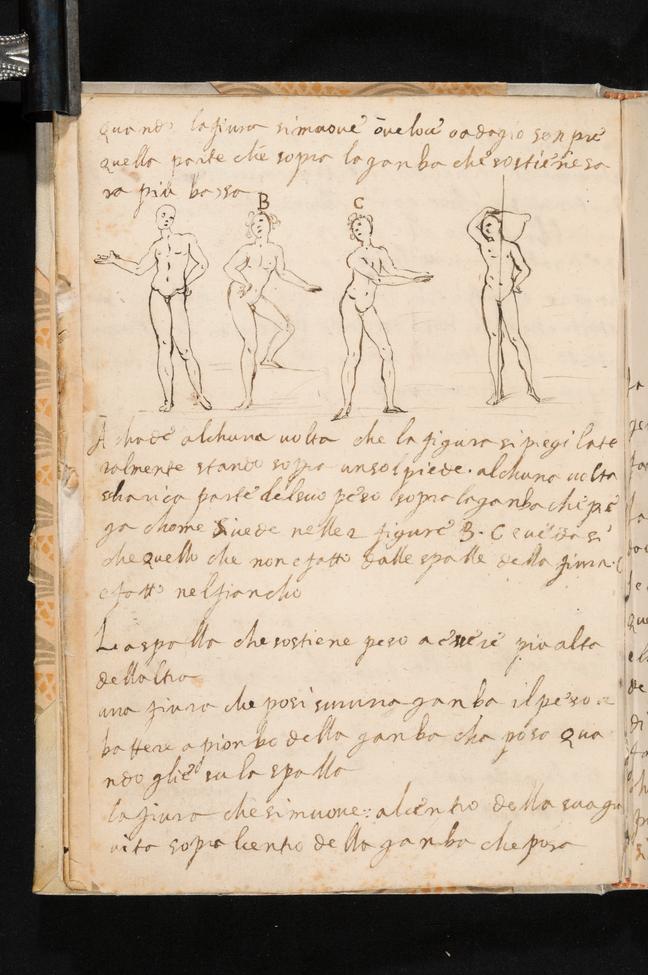 quando la fiura si muove ò veloce o adagio senpre
quella parte che sopra la ganba che sostiene sa
ra più bassa
B
C
Achade alchuna volta che la figura si piegi late
ralmente stando sopra un sol piede. alchuna uolta
scharica parte del suo peso sopra la ganba che pie
ga chome si uede nelle 2 figure B. C e uedasi
che quello che non e fatto dalle spalle della fiura. C
e fatto nel fiancho
La spalla che sostiene peso a essere più alta
dellaltra
una fiura che posi sur una ganba il peso a
battere a pionbo della ganba cha posa qua
ndo gliel su la spalla
la fiura che si muove: al centro della sua gra
uita sopra lcentro della ganba che posa